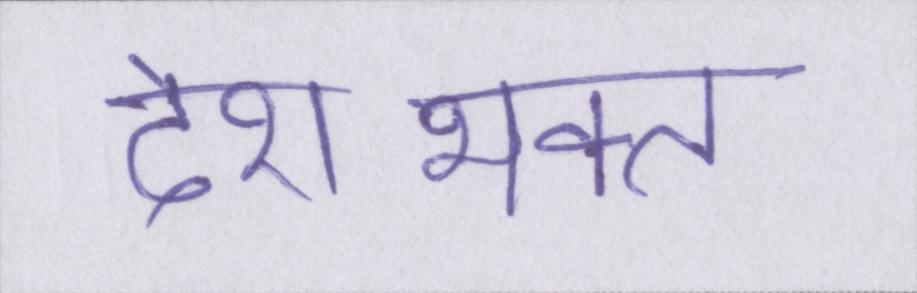 देश भक्त